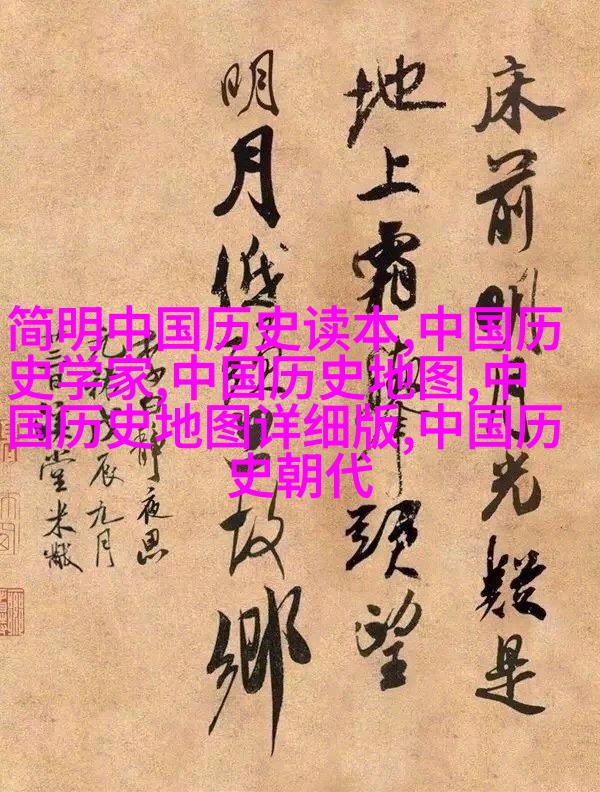 简明中国历史读本,中国历
史学家,中国历史地图,中
国历史地图详细版,中国历
史朝代
床前明月光疑是
地上霜舉頭望
明月低頭思故鄉
李白靜夜思
元祐戊辰九月
堂米黻